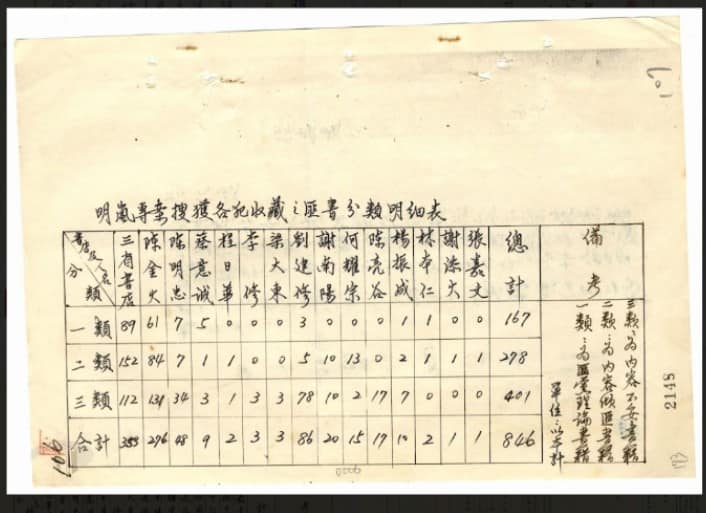 107
明嵐專案搜獲各犯收藏之匪書分類明細表
書店及人名 分類 三省書店 陳金火 陳明忠 蔡意誠 程日華 李修 梁大東 劉建修 謝南陽 何耀宗 陳亮谷 楊振威 林本仁 張嘉文 總計 備考
一類 89 61 7 5 0 0 0 3 0 0 0 1 1 0 0 167
二類 152 84 7 1 1 0 0 5 10 13 0 2 1 1 1 278
三類 112 131 34 3 1 3 3 78 10 2 17 7 0 0 0 401
合計 353 276 48 9 2 3 3 86 20 15 17 10 2 1 1 846
三類:為內容不妥書籍
二類:為內容傾匪書籍
一類:為匪黨理論書籍
單位:以本計
2148
106